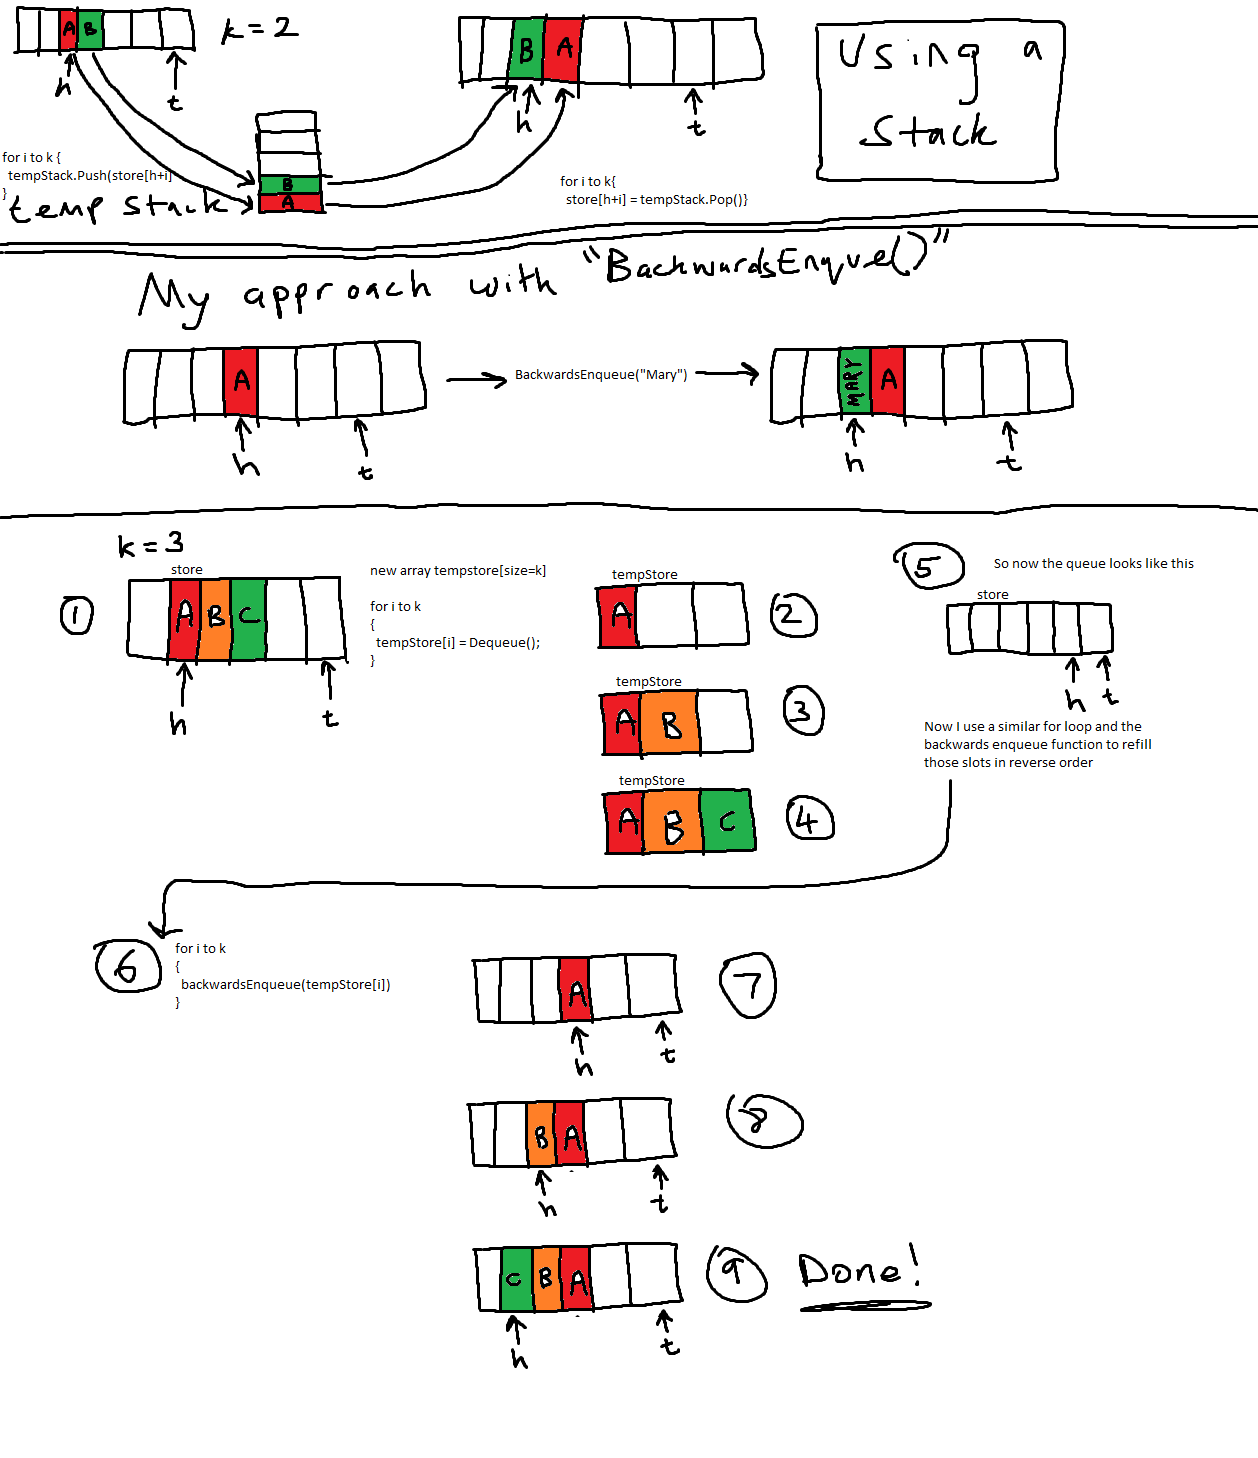 A B
k = 2
h
t
for i to k {
tempStack.Push(store[h+i]
}
temp stack
B
A
B A
h
t
for i to k{
store[h+i] = tempStack.Pop()}
Using a
Stack
My approach with "BackwardsEnqueue()"
A
h
t
BackwardsEnqueue("Mary")
MARY A
h
t
k = 3
store
1
A B C
h
t
new array tempstore[size=k]
for i to k
{
tempStore[i] = Dequeue();
}
tempStore
A
2
tempStore
A B
3
tempStore
A B C
4
5
So now the queue looks like this
store
h
t
Now I use a similar for loop and the
backwards enqueue function to refill
those slots in reverse order
6
for i to k
{
backwardsEnqueue(tempStore[i])
}
A
7
h
t
B A
8
h
t
C B A
9
Done!
h
t